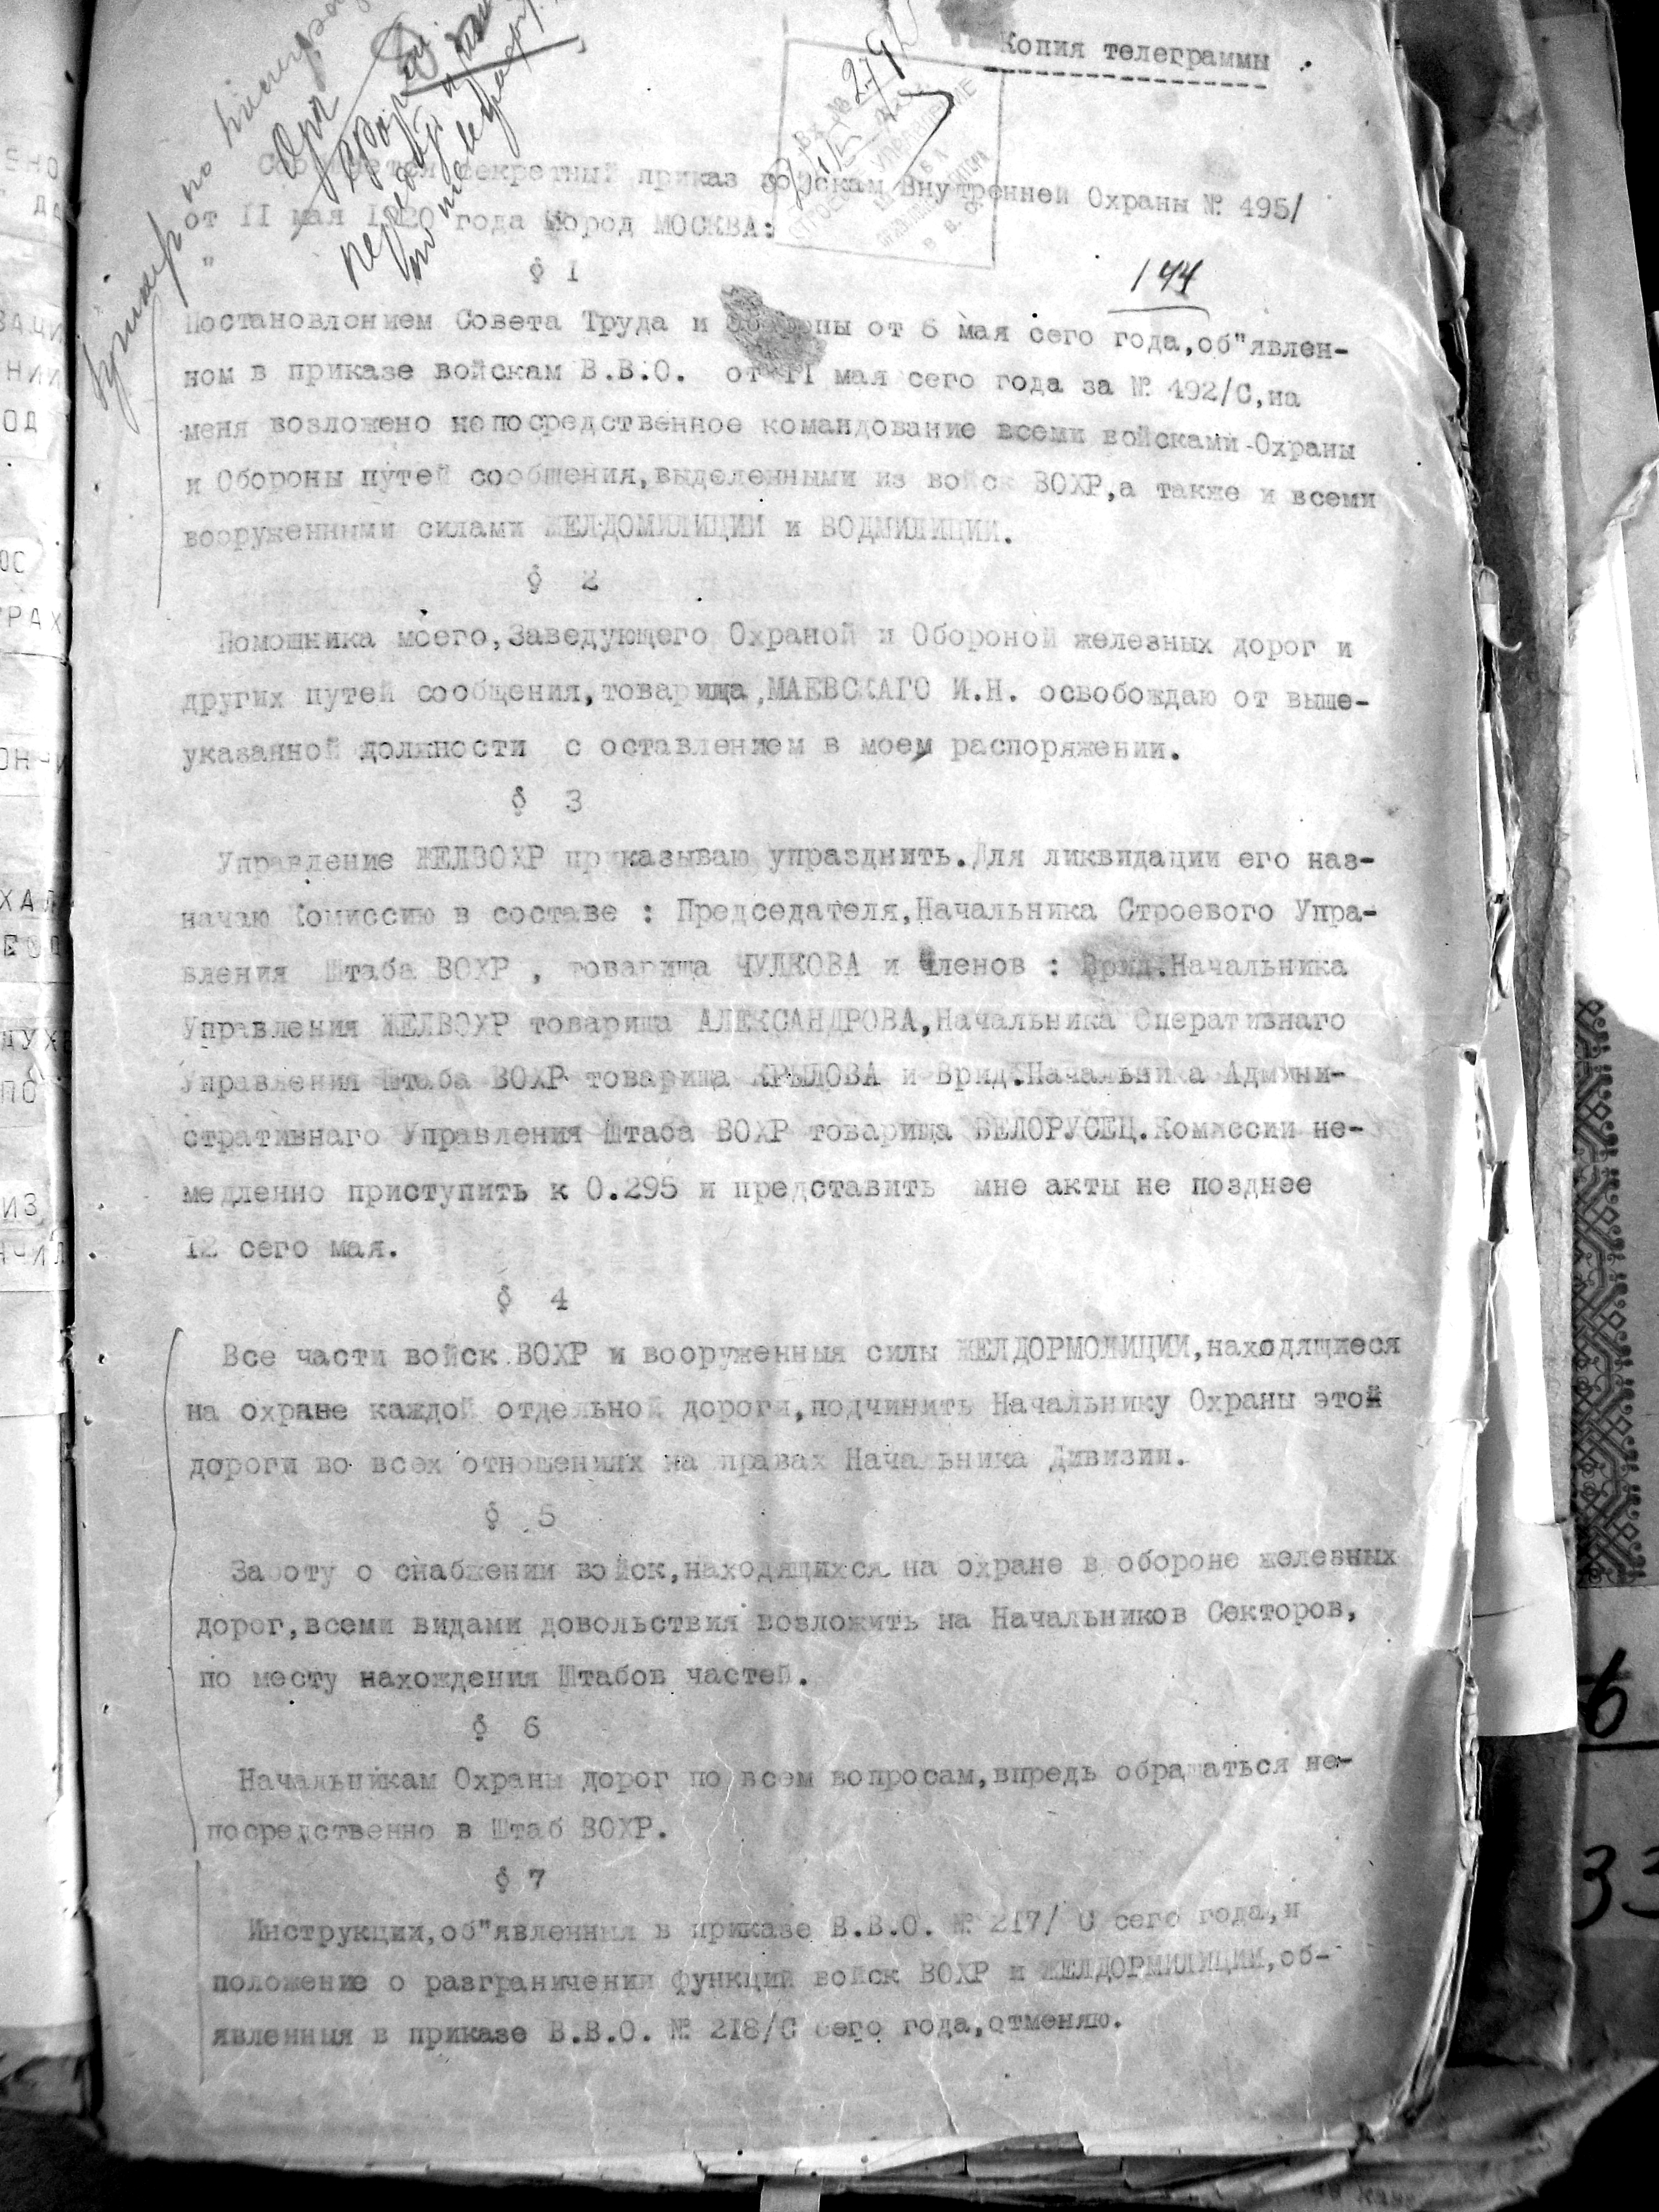 Копия телеграммы
секретный приказ войскам Внутренней Охраны № 495/
от II мая 1920 года город МОСКВА:
144
§ I
Постановлонием Совета Труда и Обороны от 6 мая сего года,об"явлен-
ном в приказе войскам В.В.О. от II мая сего года за № 492/С,на
меня возложено непосредственное командование всеми войсками Охраны
и Обороны путей сообщения,выделенными из войск ВОХР,а также и всеми
вооруженными силами ЖЕЛДОМИЛИЦИИ и ВОДМИЛИЦИИ.
§ 2
Помошника моего,Заведующего Охраной и Обороной железных дорог и
других путей сообщения,товарища,МАЕВСКАГО И.Н. освобождаю от выше-
указанной должности с оставлением в моем распоряжении.
§ 3
Управление ЖЕЛВОХР приказываю упразднить.Для ликвидации его наз-
начаю Комиссию в составе : Председателя,Начальника Строевого Упра-
вления Штаба ВОХР , товарища ЧУЛКОВА и Членов : Врид.Начальника
Управления ЖЕЛВОХР товарища АЛЕКСАНДРОВА,Начальника Оперативнаго
Управления Штаба ВОХР товарища КРЫЛОВА и Врид.Начальника Админи-
стративнаго Управления Штаба ВОХР товарища БЕЛОРУСЕЦ.Комиссии не-
медленно приступить к 0.295 и представить мне акты не позднее
12 сего мая.
§ 4
Все части войск ВОХР и вооруженныя силы ЖЕЛДОРМОЛИЦИИ,находящиеся
на охране каждой отдельной дороги,подчинить Начальнику Охраны этой
дороги во всех отношениях на правах Начальника Дивизии.
§ 5
Заботу о снабжении войск,находящихся на охране в обороне железных
дорог,всеми видами довольствия возложить на Начальников Секторов,
по месту нахождения Штабов частей.
§ 6
Начальникам Охраны дорог по всем вопросам,впредь обращаться не-
посредственно в Штаб ВОХР.
§ 7
Инструкции,об"явленныя в приказе В.В.О. № 217/ С сего года,и
положение о разграничении функций войск ВОХР и ЖЕЛДОРМИЛИЦИИ,об-
явленныя в приказе В.В.О. № 218/С сего года,отменяю.